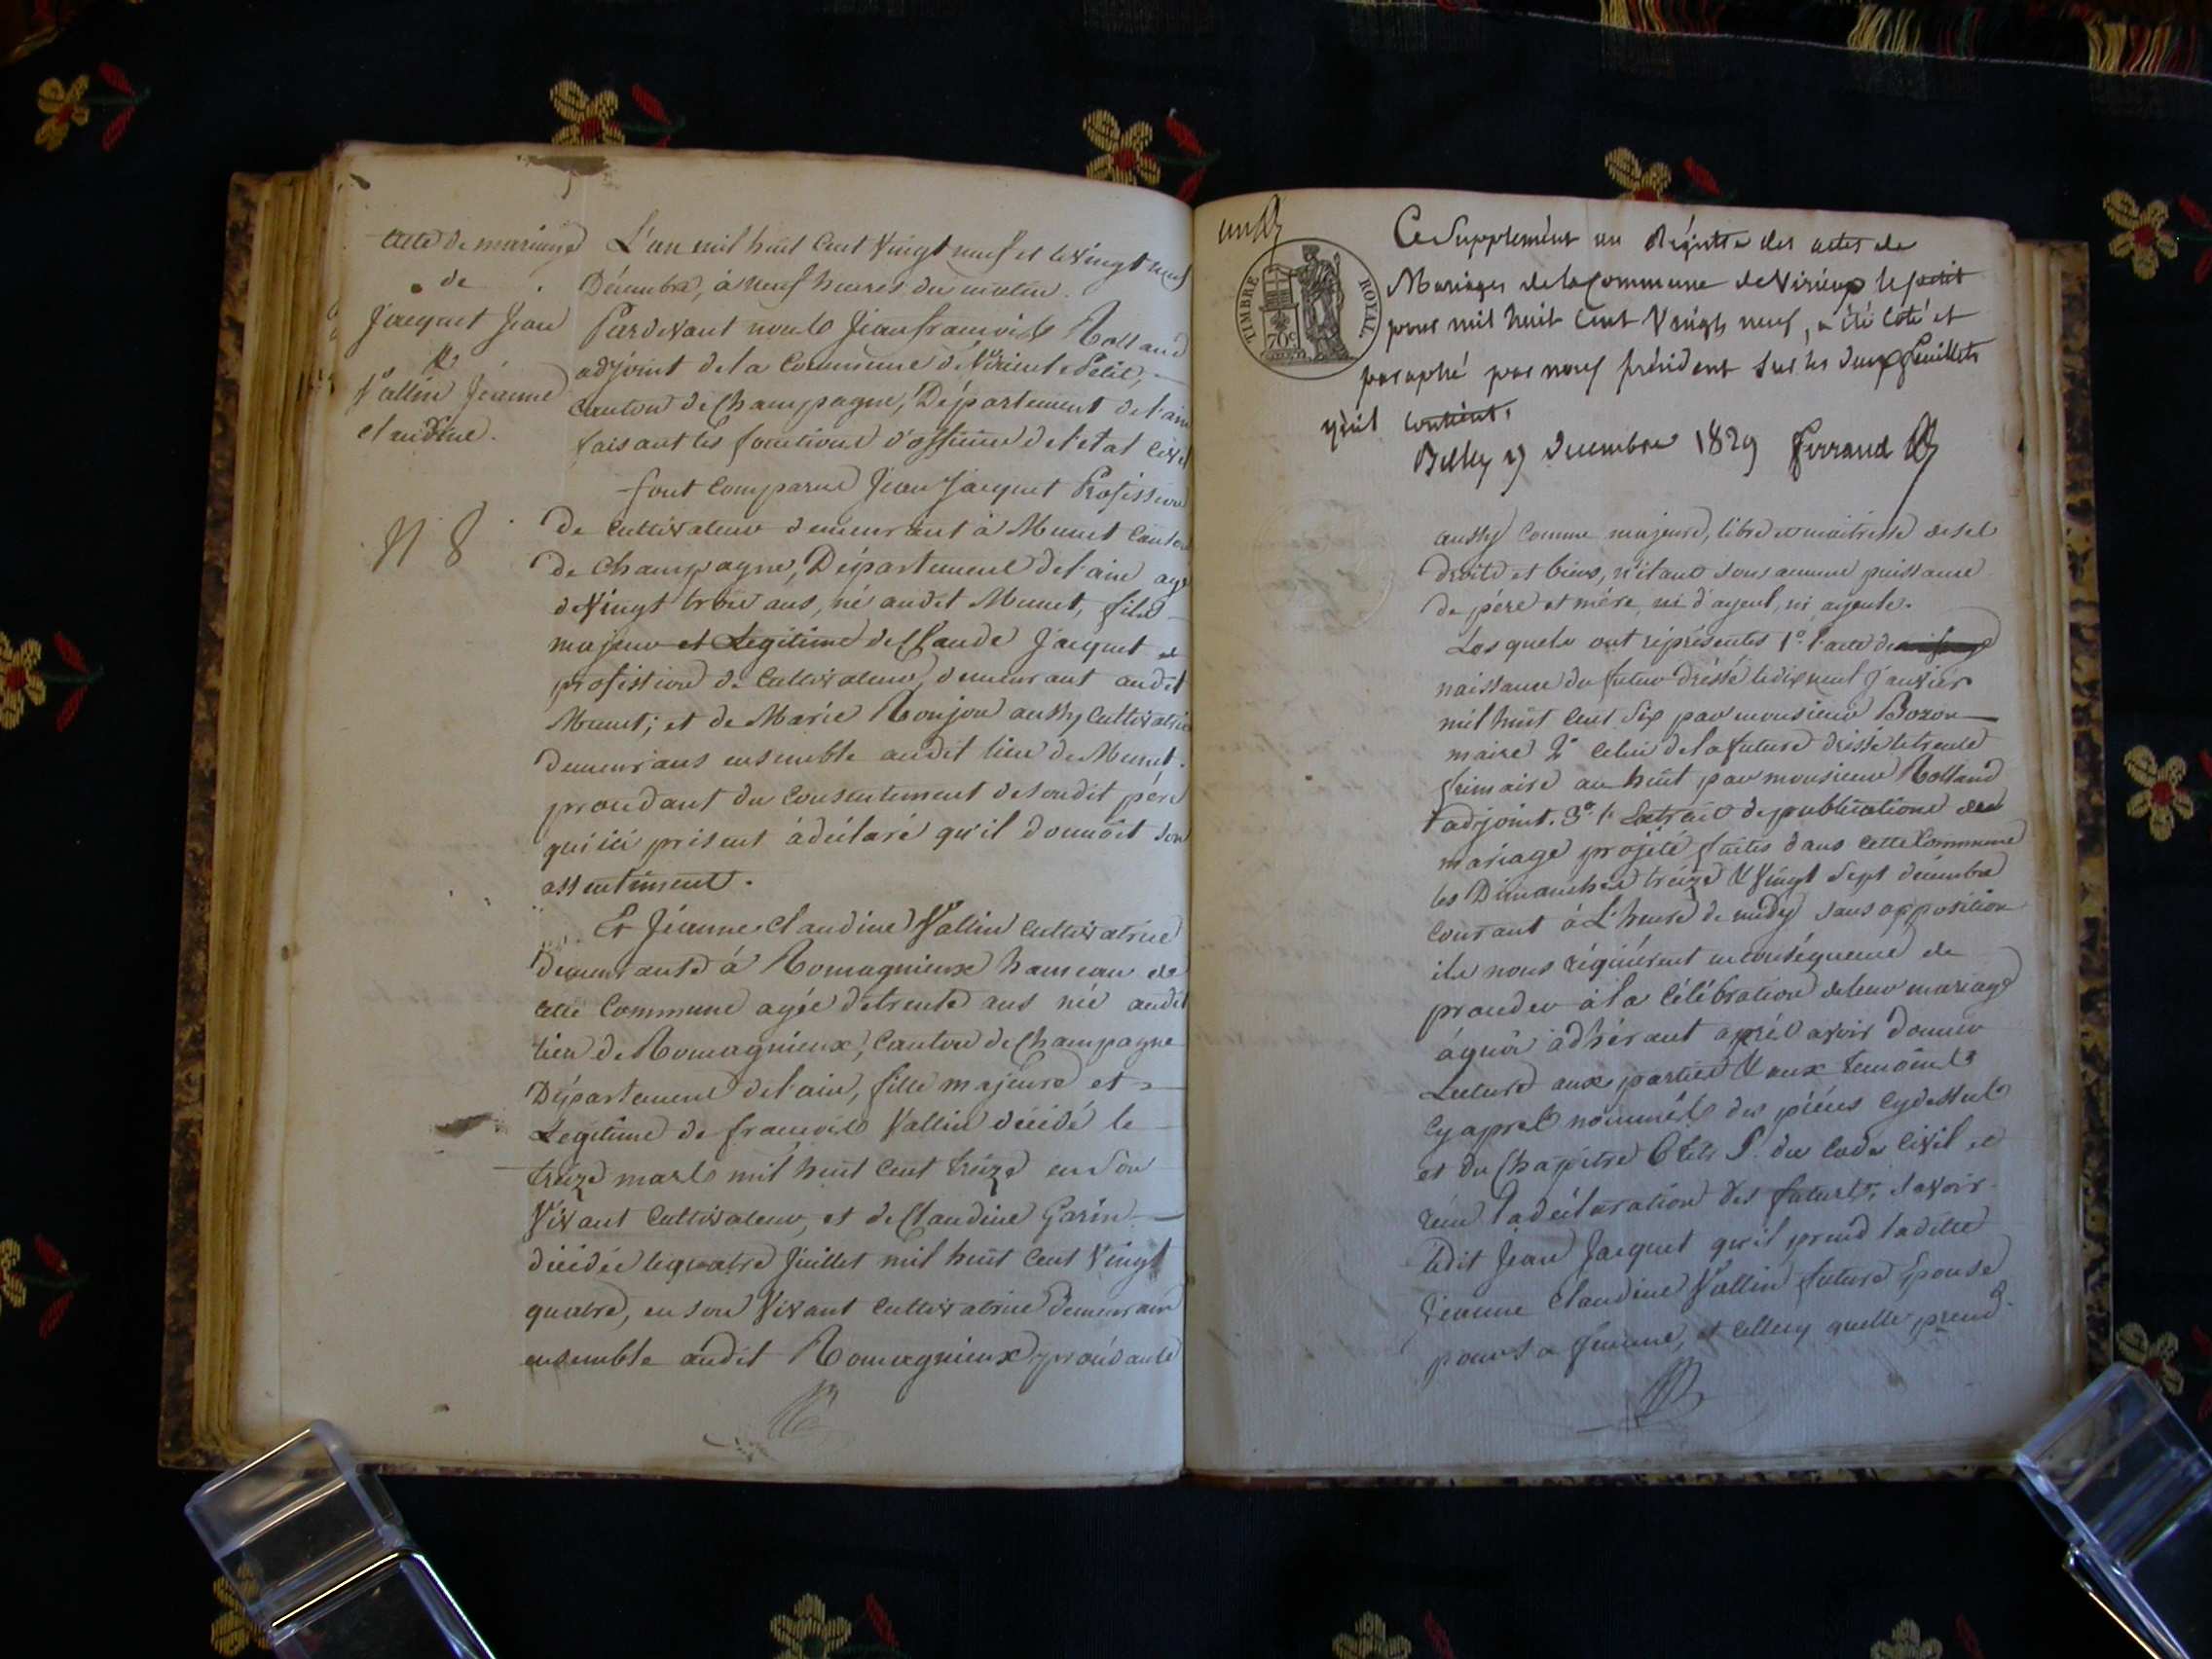 acte de mariage
de
Jacquet Jean
&
Vallin Jeanne
claudine.
N 8
L'an mil huit Cent Vingt neuf et le Vingt neuf
Décembre, à neuf heures du matin.
Pardevant nous Jean françois Rolland
adjoint de la Commune de Virieu le Petit,
Canton de Champagne, Département de l'ain
faisant les fonctions d'officier de l'etat Civil
sont Comparus Jean Jacquet Profission
de Cultivateur demeurant à Munet Canton
de Champagne, Département de l'ain agé
de Vingt trois ans, né audit Munet, fils
majeur et Legitime de Claude Jacquet
profission de Cultivateur, demeurant audit
Munet; et de Marie Roujon aussy Cultivatrice
demeurans ensemble audit lieu de Munet.
procédant du Consentement de sondit père
qui ici présent à déclaré qu'il donnoit son
assentiment.
Et Jéanne Claudine Vallin Cultivatrice
demeurante à Romagnieux hameau de
cette Commune agée de trente ans née audit
lieu de Romagnieux, Canton de Champagne
Département de l'ain, fille majeure et
Legitime de françois Vallin décédé le
treize mars mil huit Cent treize en son
Vivant Cultivateur, et de Claudine Garin
décédée le quatre Juillet mil huit Cent Vingt
quatre, en son Vivant Cultivatrice demeurans
ensemble audit Romagnieux, procédante
TIMBRE ROYAL
70c
Ce Supplément au Régistre des actes de
Mariages de la Commune de Virieux le petit
pour mil huit Cent Vingt neuf, a été Coté et
paraphé par nous président sur les deux feuillets
qu'il Contient.
Belley 29 décembre 1829 Ferrand
aussy Comme majeure, libre et maitresse de ses
droits et biens, n'étant sous aucune puissance
de père et mère, ni d'ayeul, ni ayeule.
Lesquels ont représentés 1° l'acte de
naissance du futur dréssé le dix neuf Janvier
mil huit Cent Six par monsieur Bozon
maire 2° Celui de la future dréssé le trente
frimaire an huit par monsieur Rolland
adjoint. 3° l'Extrait de publications du
mariage projété faites dans cette Commune
les Dimanches treize & Vingt Sept décembre
Courant à L'heure de midy sans opposition
ils nous réquièrent en Conséquence de
procéder à la Célébration de leur mariage
à quoi adhérant après avoir donner
Lecture aux parties & aux temoins
Cy après nommés des pièces Cydessus
et du Chapitre 6 de du Code Civil et
réçu la déclaration des futurs; Savoir
ledit Jean Jacquet qu'il prend ladite
Jeanne Claudine Vallin future Epouse
pour sa femme, et Cellecy quelle prend